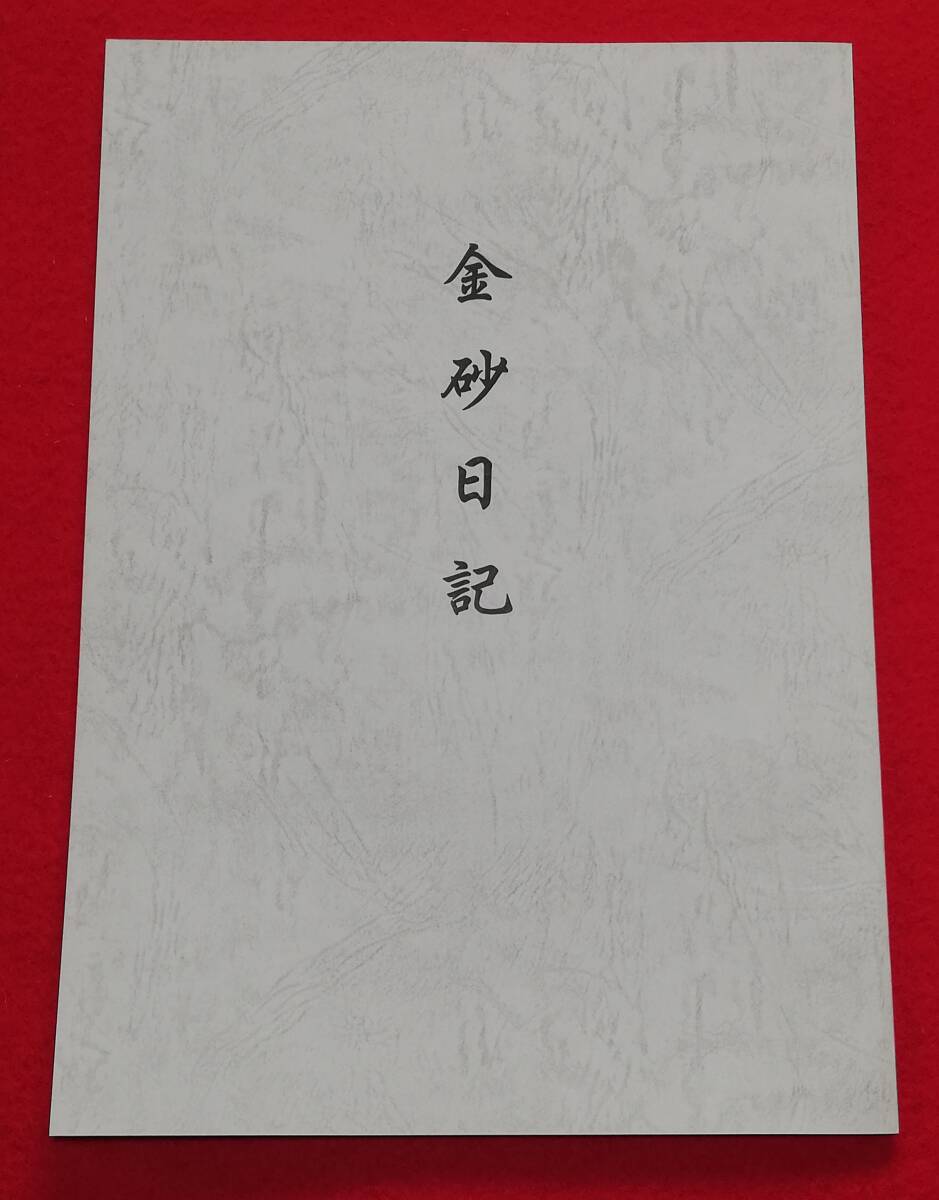 金砂日記